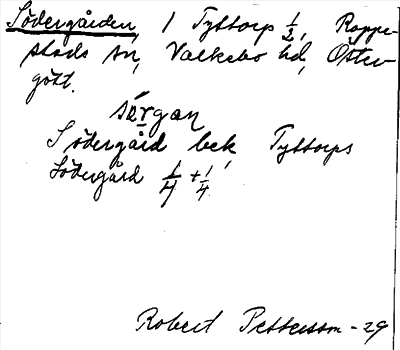 Södergården, 1 Tyttorp 1/2, Rappe-
stads sn, Valkebo hd, Öster-
götl.
sörgan
S ödergård bek Tyttorps
Södergård 1/4 + 1/4
Robert Pettersson - 29